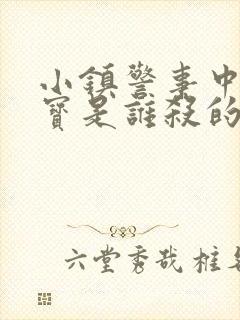 小鎮警事中
寶是誰殺的
六堂秀哉桩